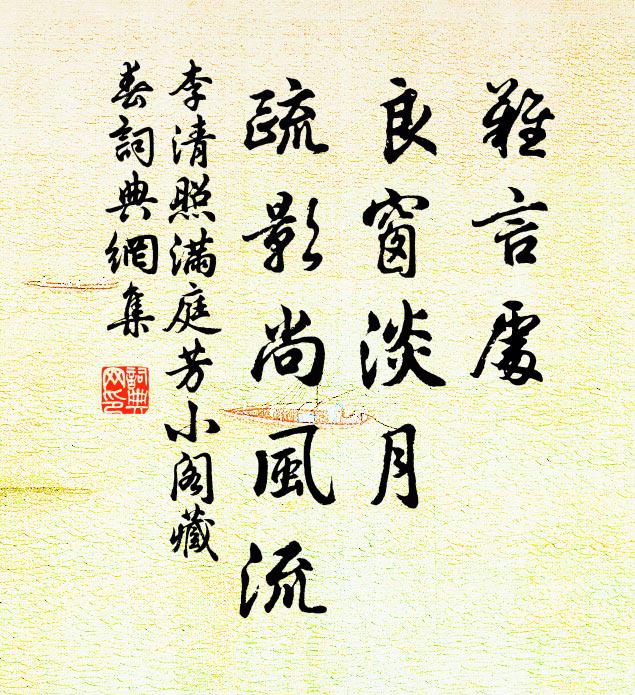 難言處
良窗淡月
疏影尚風流
李清照滿庭芳小閣藏
春詞典網集
詞典
网印